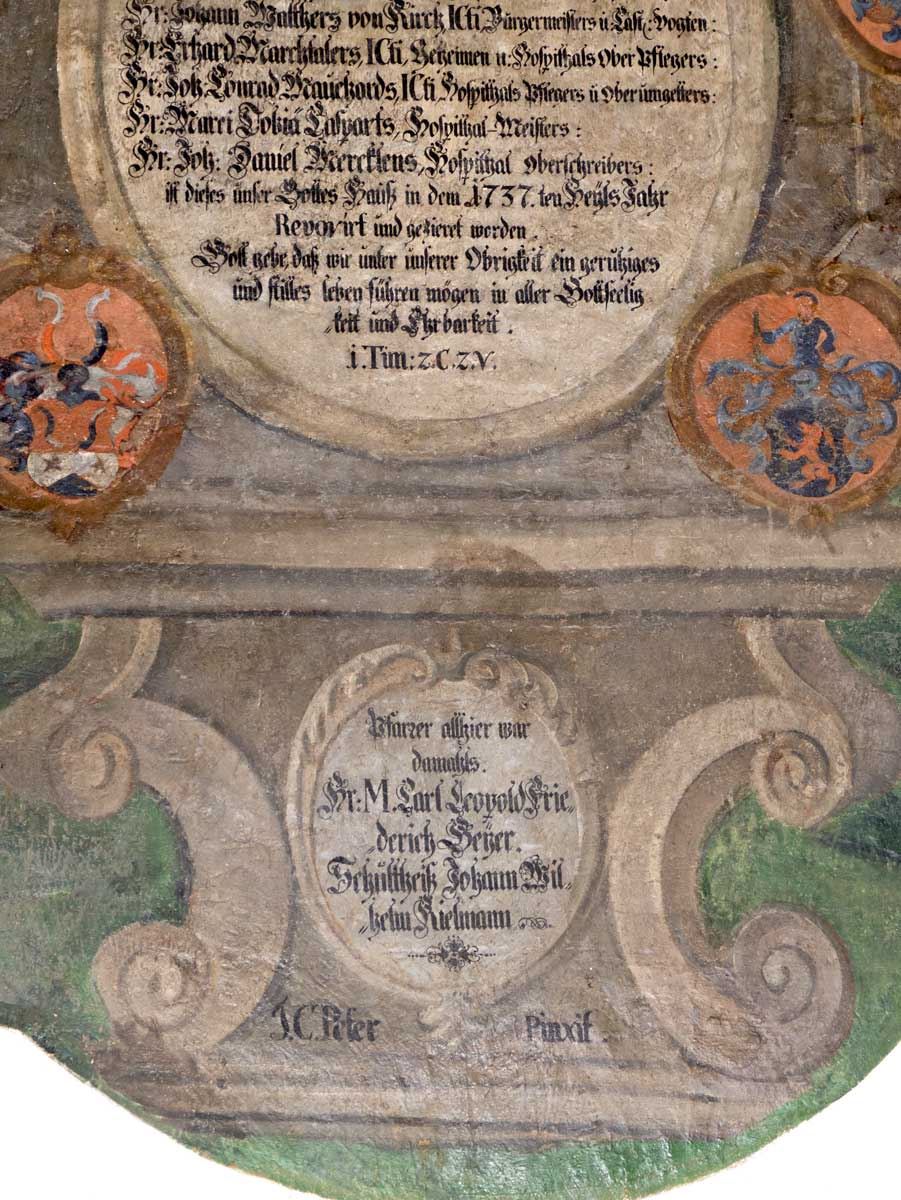 Hr: Johann Walthers von Kirch ICti Bürgermeisters ü Cast: Vogten:
Hr: Erhard Marchtalers, ICti, Geheimen u: Hospithals Ober Pflegers:
Hr: Joh: Conrad Mauchards, ICti Hospithals Pflegers ü Oberümgelters:
Hr: Marci Tobiä Casparts, Hospithal-Meisters:
Hr: Joh: Daniel Mercklens, Hospithal Oberschreibers:
ist dieses ünser Gottes Hauß in dem 1737.ten Heyls Jahr
Renovirt und gezieret worden.
Gott gebe, daß wir unter ünserer Obrigkeit ein geruhiges
ünd stilles leben führen mögen in aller Gottseelig
-keit und Ehrbarkeit.
i.Tim: 2.C.2.V.
Pfarrer allhier war
damahls.
Hr: M. Carl Leopold Frie-
-derich Geyer.
Schültheiß Johann Wil-
-helm Kielmann
J.C. Peter Pinxit.